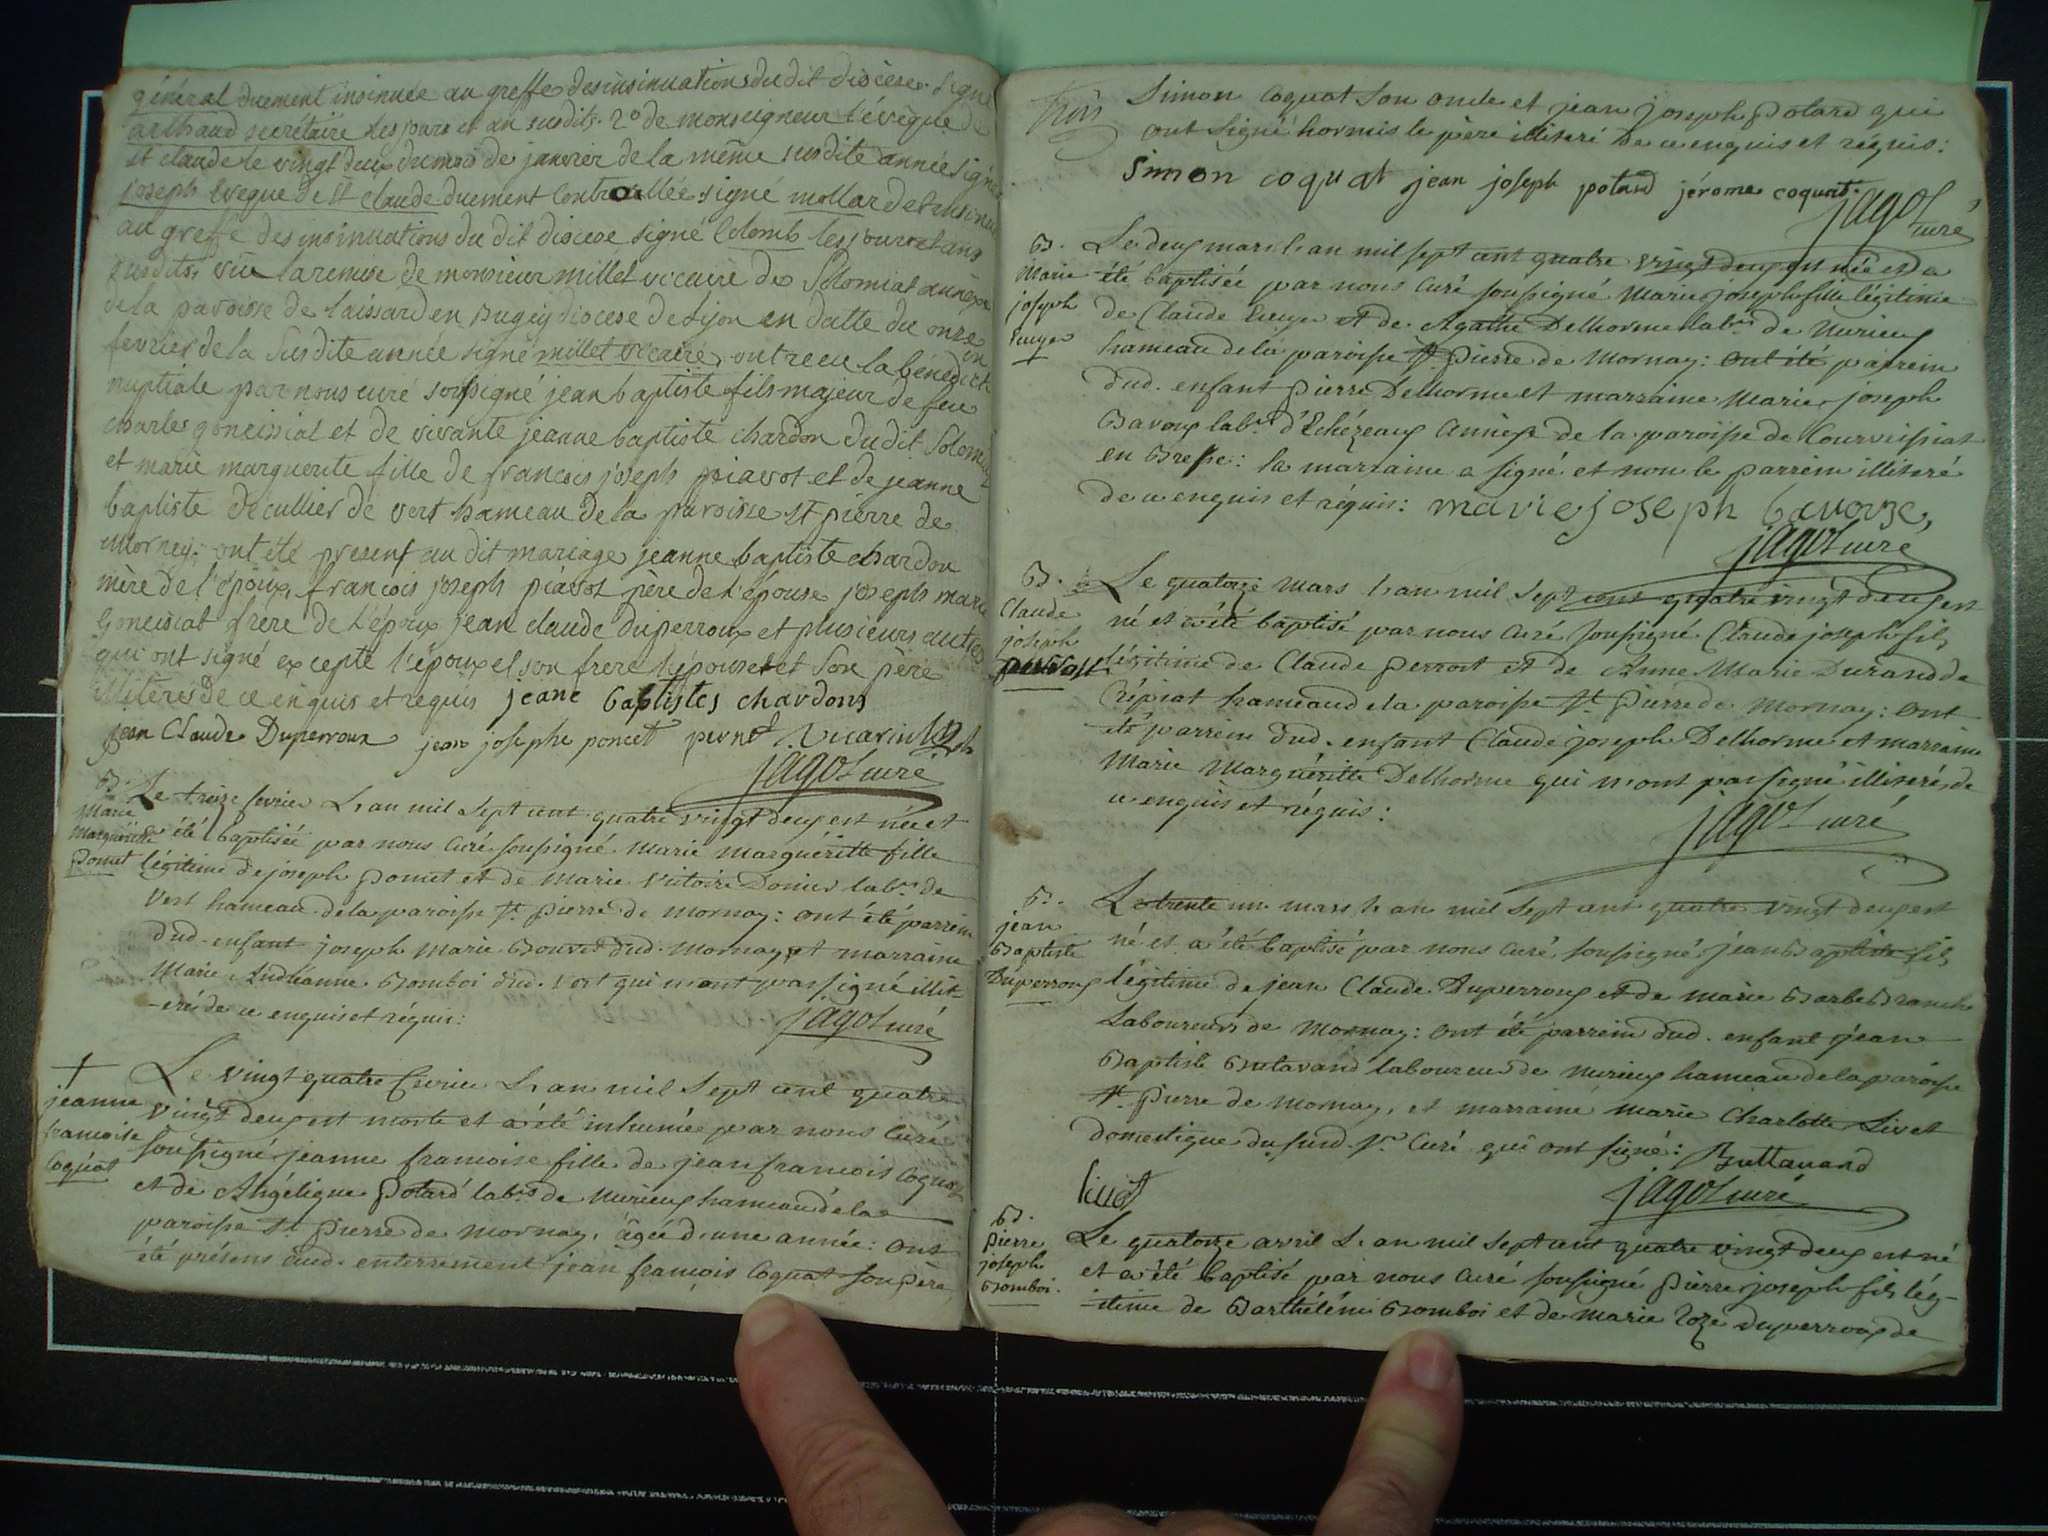 général duement insinuée au greffe des insinuations du dit diocèse. signé
arthaud secrétaire les jours et an susdits. 2º de monseigneur l'évêque de
st claude le vingt deux du mois de janvier de la même susdite année signé
joseph evêque de st claude duement controllée signé mollard et insinué
au greffe des insinuations du dit diocese signé Colomb les jours et ans
susdits, vûe la remise de monsieur millet vicaire de Solomiat annexe
de la paroisse de laissard en Bugey diocese de Lyon en datte du onze
fevrier de la susdite année signé millet vicaire, ont reçu la bénédiction
nuptiale par nous curé soussigné jean baptiste fils majeur de feu
charles goneissiat et de vivante jeanne baptiste chardon du dit Solomiat
et marie marguerite fille de françois joseph piavot et de jeanne
baptiste decullier de vert hameau de la paroisse st pierre de
mornay: ont été present au dit mariage jeanne baptiste chardon
mère de l'époux, françois joseph piavot père de l'épouse joseph marie
Goneissiat frère de l'époux jean claude duperroux et plusieurs autres
qui ont signé excepté l'époux et son frere l'épouse et son père
illiterés de ce enquis et requis jeane baptistes chardons
jean Claude Duperroux jean josephe poncet
jagot curé
B.
Marie
Marguéritte
Poncet
Le treize fevrier L'an mil sept cent quatre vingt deux est née et
a été baptisée par nous curé soussigné marie marguéritte fille
légitime de joseph poncet et de marie victoire Donier lab.rs de
Vert hameau de la paroisse St. pierre de mornay: ont été parrein
dud. enfant joseph marie Bouvet dud. mornay et marraine
Marie Andréanne Bomboi dud. vert qui n'ont pas signé illit-
-erés de ce enquis et réquis:
jagot curé
†
jeanne
francoise
Coquat
Le vingt quatre fevrier L'an mil sept cent quatre
vingt deux est morte et a été inhumée par nous curé
soussigné jeanne francoise fille de jean francois Coquat
et de Angélique Potard lab.rs de nurieux hameau de la
paroisse St. pierre de mornay, âgée d'une année: ont
été présens aud. enterrement jean françois Coquat son père
trois
Simon Coquat son oncle et jean joseph Potard qui
ont signé hormis le père illiteré de ce enquis et réquis:
simon coquat jean joseph potard jérome coquat.
jagot curé
B.
Marie
joseph
Le deux mars l'an mil sept cent quatre vingt deux est née et a
été baptisée par nous curé soussigné Marie joseph fille légitime
de Claude et de Agathe Delhorme lab.rs de Nurieux
hameau de la paroisse St. Pierre de Mornay: ont été parrein
dud. enfant Pierre Delhorme et marraine Marie joseph
Bavoux lab.rs d'Echézeaux annexe de la paroisse de Courvissiat
en Bresse: la marraine a signé et non le parrein illiteré
de ce enquis et réquis: marie joseph bavouze,
jagot curé
B.
Claude
joseph
Le quatorze mars l'an mil sept cent quatre vingt deux est
né et a été baptisé par nous curé soussigné Claude joseph fils
légitime de Claude perrost et de Anne Marie Durand de
Crépiat hameau de la paroisse St. Pierre de Mornay: ont
été parrein dud. enfant Claude joseph Delhorme et marraine
Marie Marguéritte Delhorme qui n'ont pas signé illiterés de
ce enquis et réquis:
jagot curé
B.
jean
Baptiste
Duperroux
Le trente un mars l'an mil sept cent quatre vingt deux est
né et a été baptisé par nous curé soussigné jean Baptiste fils
légitime de jean Claude Duperroux et de marie Barbe Branche
Laboureurs de mornay: ont été parrein dud. enfant jean
Baptiste Butavand laboureur de nurieux hameau de la paroisse
St. pierre de mornay, et marraine marie Charlotte Livet
domestique du sud. Sr. Curé qui ont signé: Buttavand
livet
jagot curé
B.
pierre
joseph
Bomboi.
Le quatorze avril L'an mil sept cent quatre vingt deux est né
et a été baptisé par nous curé soussigné pierre joseph fils lég-
-itime de Barthélémi Bomboi et de marie roze duperroux de